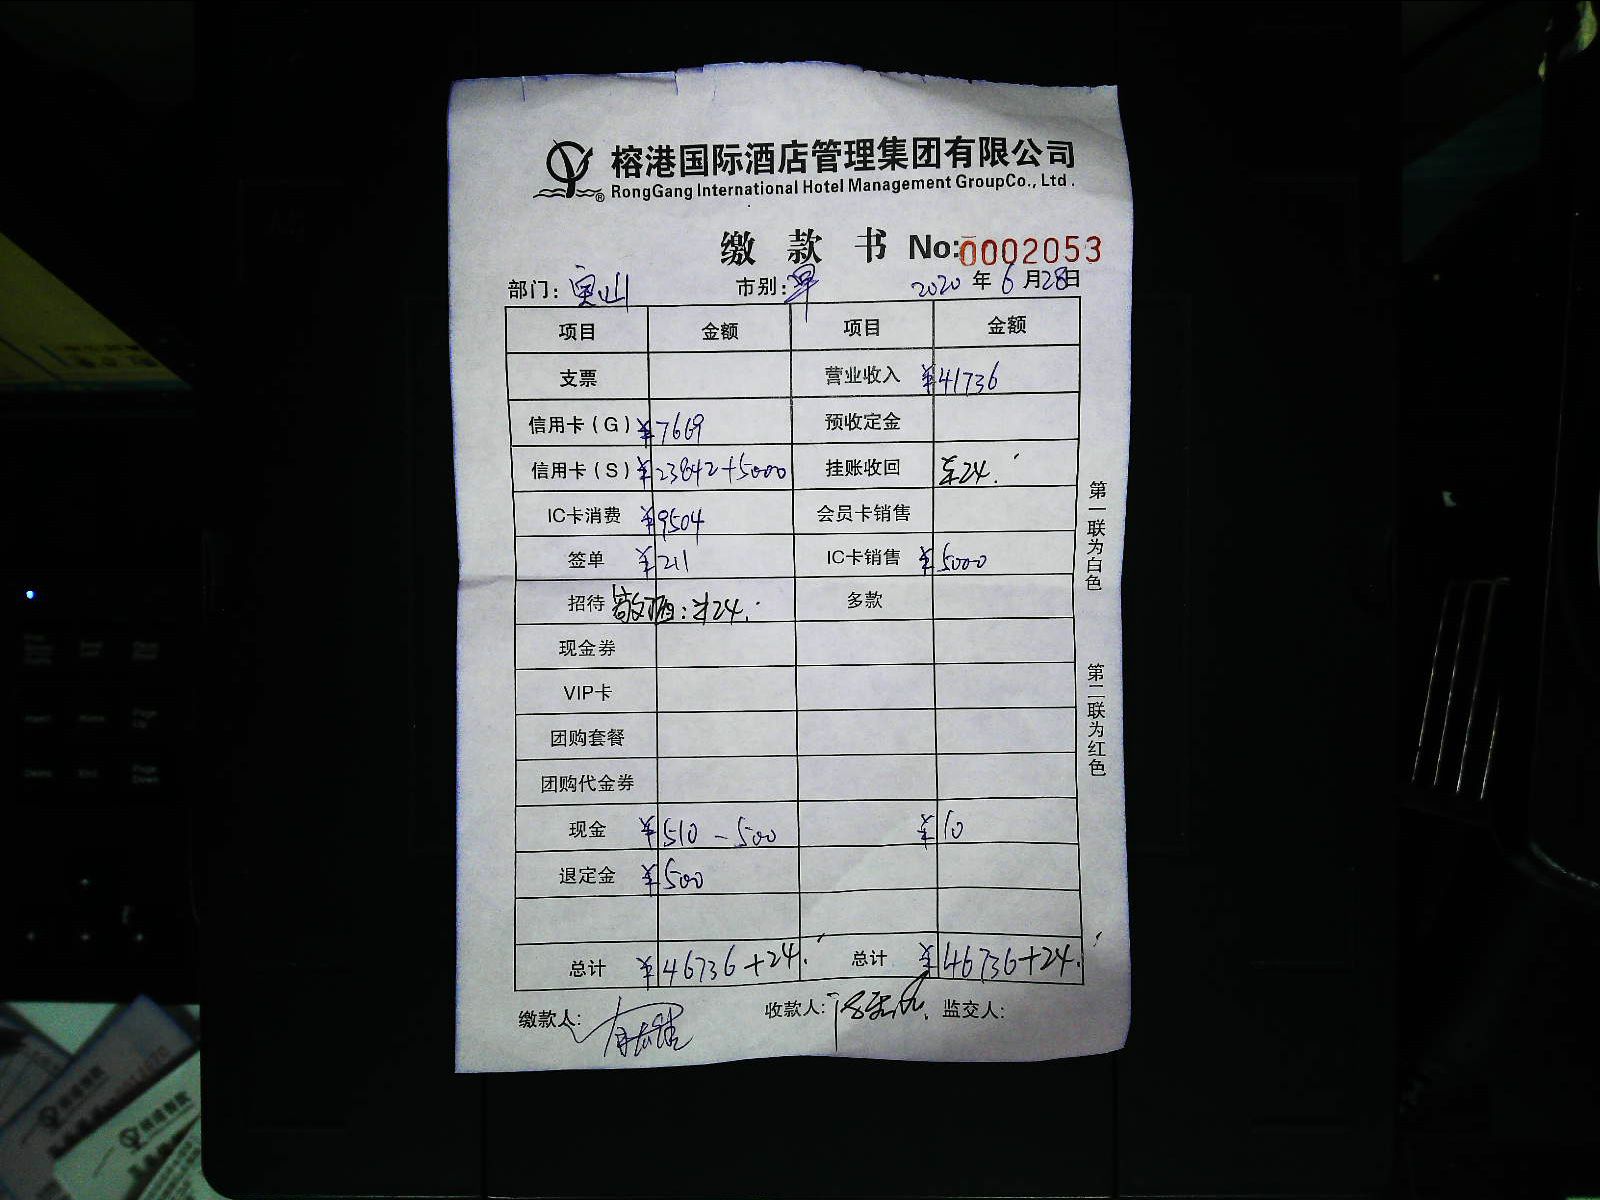 榕港国际酒店管理集团有限公司
RongGang International Hotel Management GroupCo., Ltd.
缴款书 No:0002053
部门: 宝山 市别: 早 2020年6月28日
项目 金额 项目 金额
支票 营业收入 ¥41736
信用卡(G) ¥7669 预收定金
信用卡(S) ¥23842+5000 挂账收回 ¥24.
IC卡消费 ¥9504 会员卡销售
签单 ¥211 IC卡销售 ¥5000
招待 敬酒:¥24. 多款
现金券
VIP卡
团购套餐
团购代金券
现金 ¥510-500 ¥10
退定金 ¥500
总计 ¥46736+24. 总计 ¥46736+24.
缴款人: 收款人: 监交人:
第一联为白色
第二联为红色